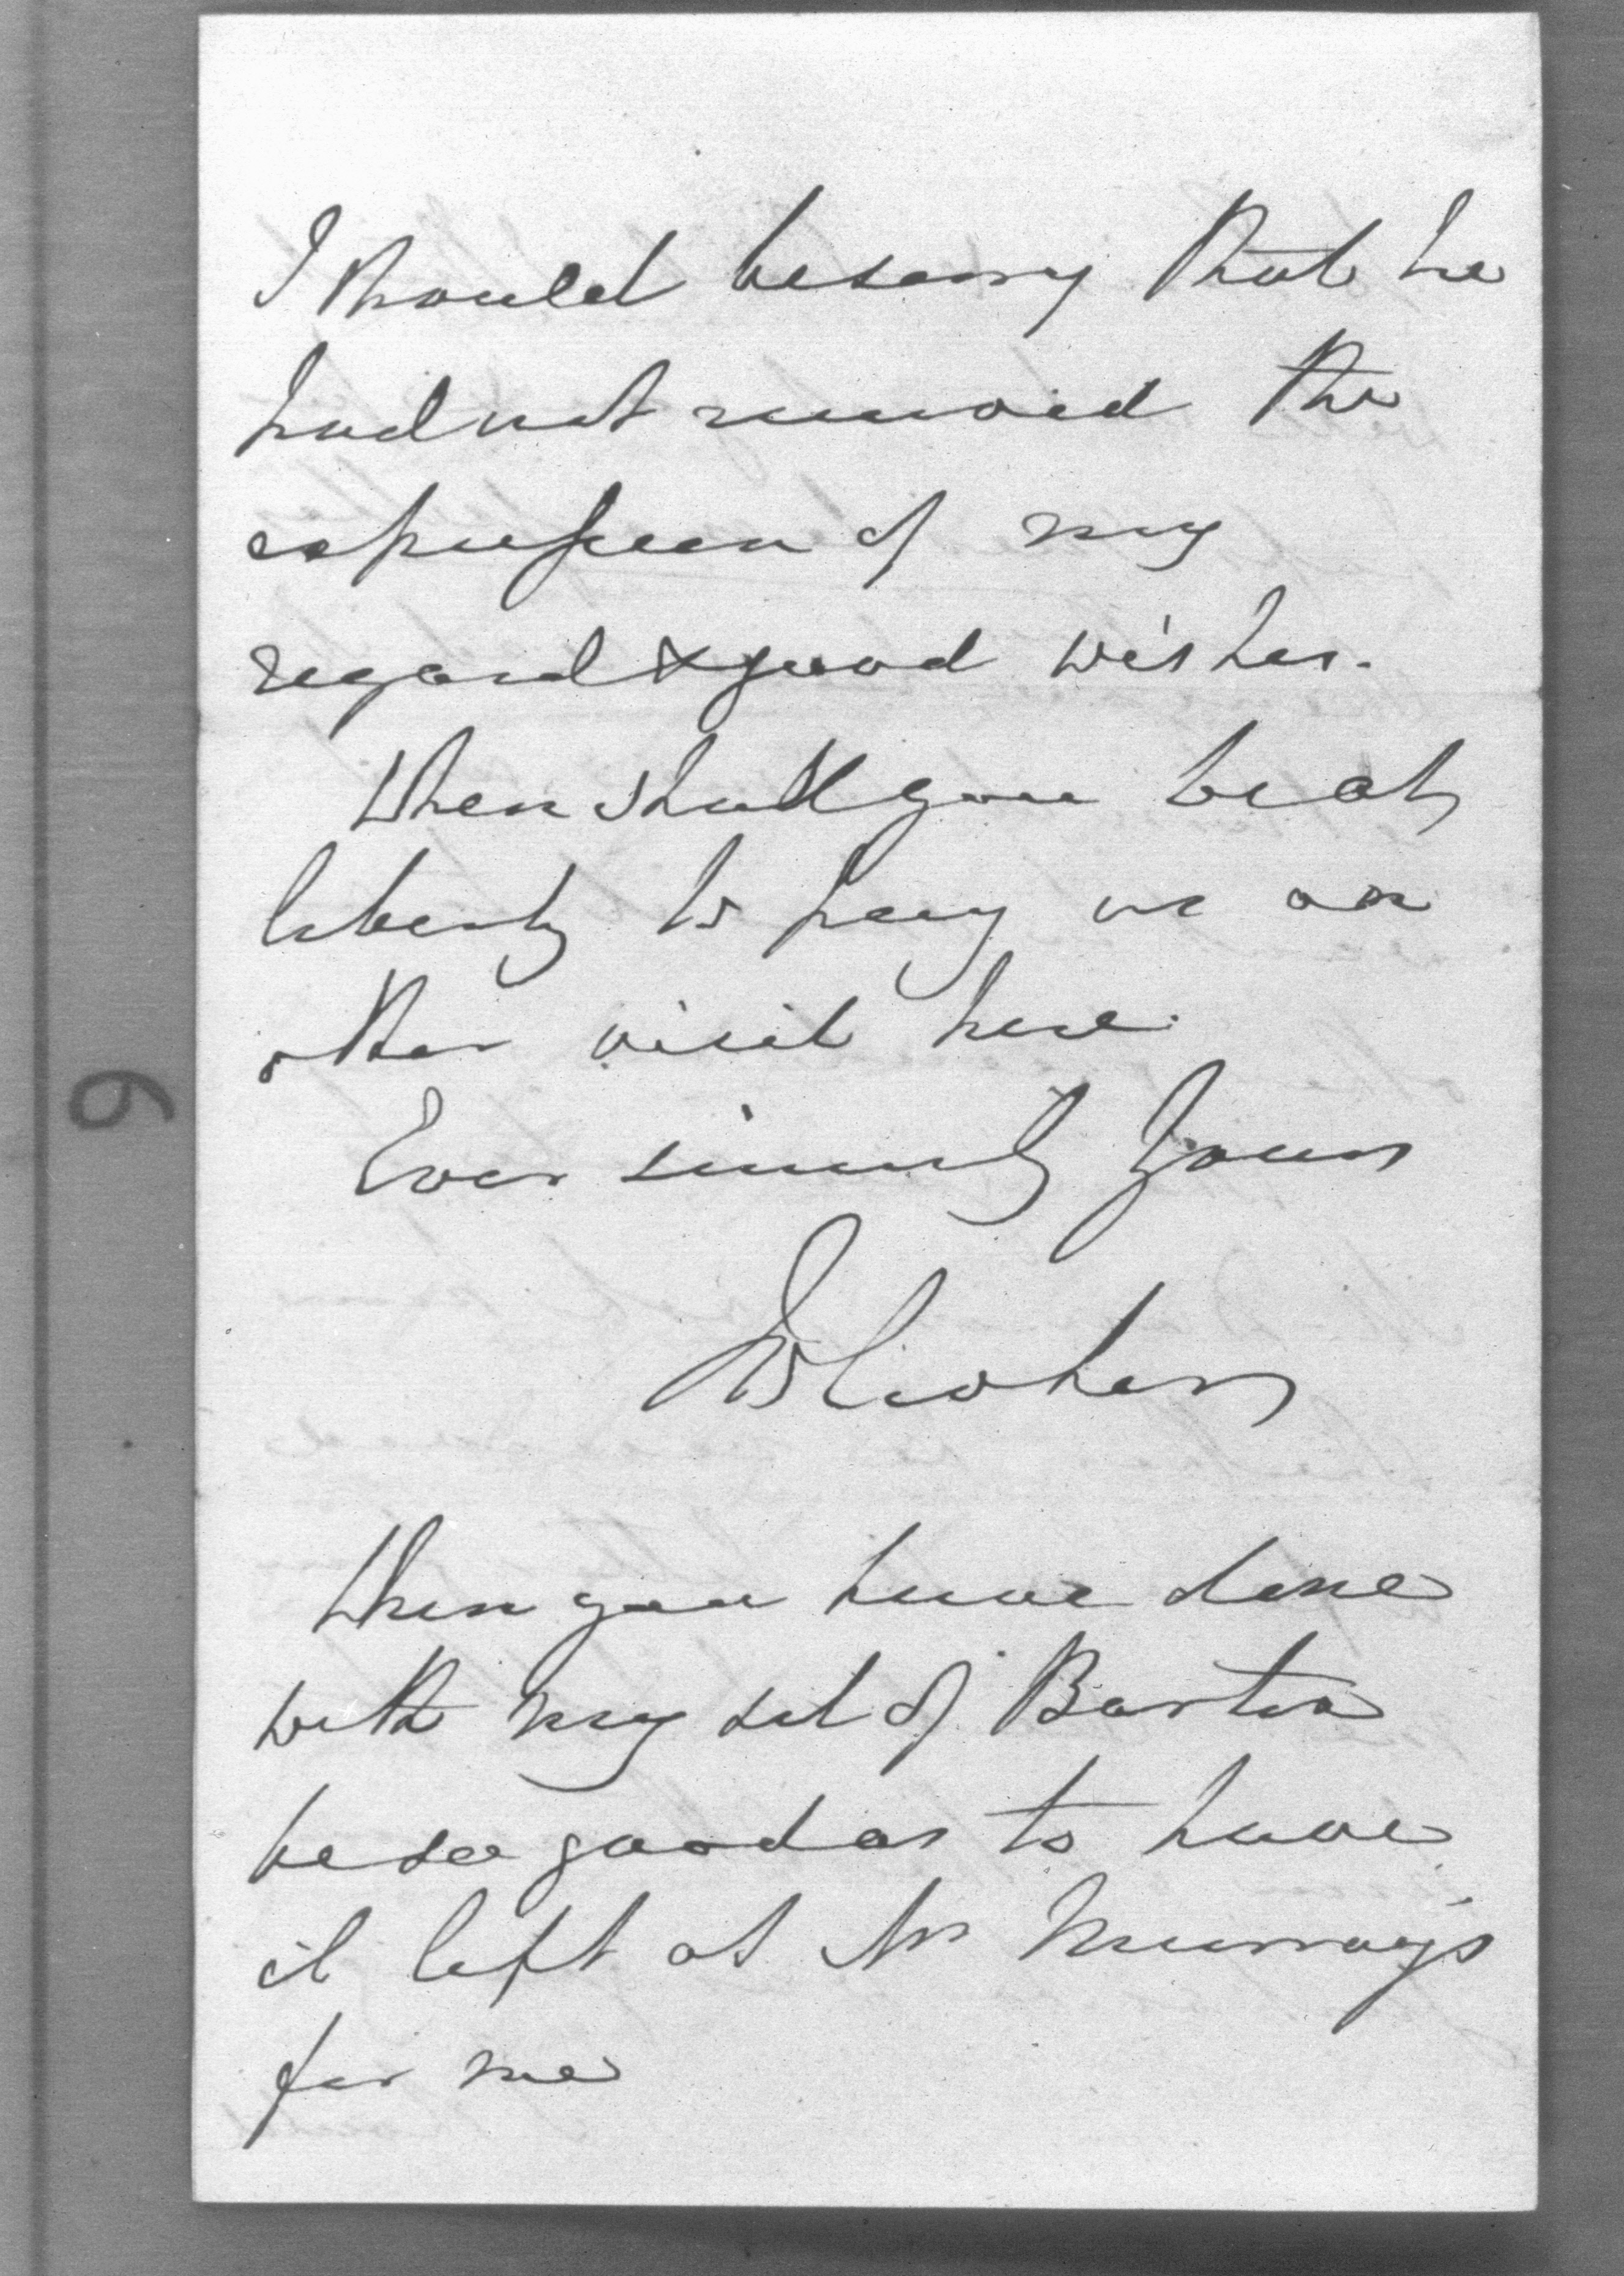 I should be sorry that he
had not received the
expression of my
regard & good wishes.
When shall you be at
liberty to pay us an
other visit here.
Ever sincerely Yours
When you have done
with my set of Barton
be so good as to have
it left at Mr Murray's
for me
6